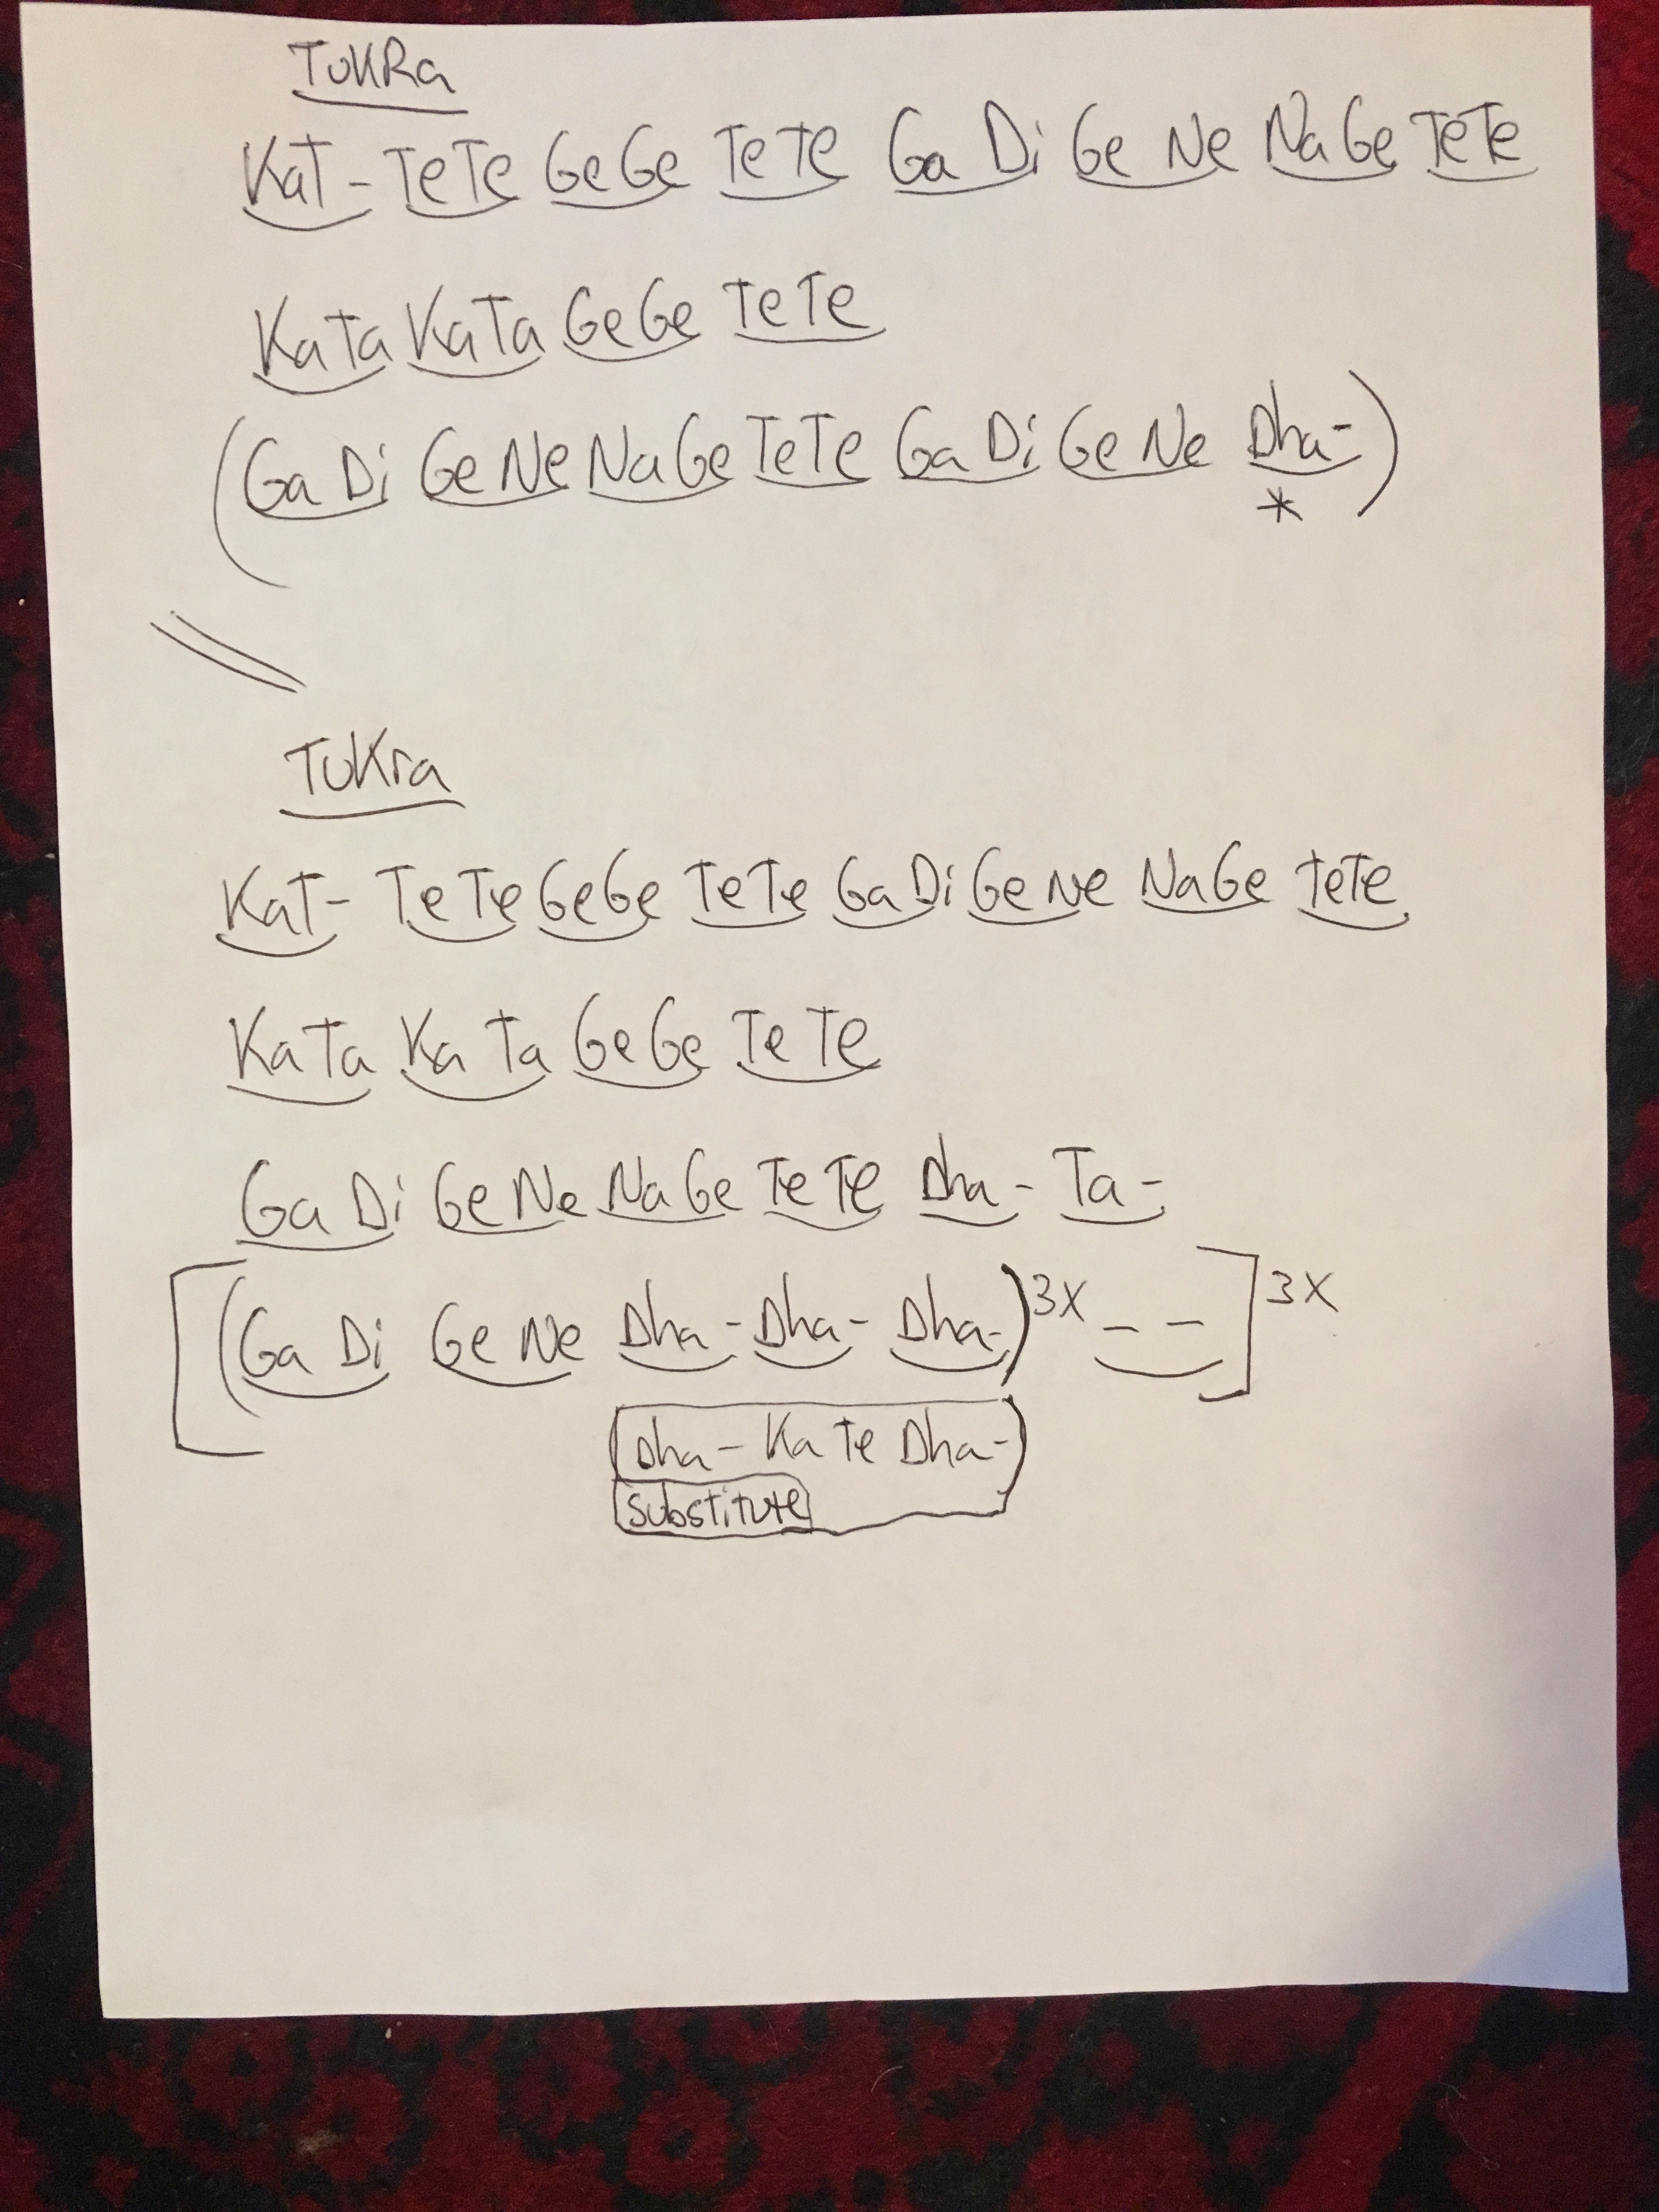 TuKRa
KaT- TeTe GeGe TeTe GaDi GeNe NaGe TeTe
KaTa KaTa GeGe TeTe
(GaDi GeNe NaGe TeTe GaDi GeNe Dha-)
*
TuKra
KaT- TeTe GeGe TeTe GaDi GeNe NaGe TeTe
KaTa KaTa GeGe TeTe
GaDi GeNe NaGe TeTe Dha- Ta-
[(GaDi GeNe Dha- Dha- Dha-)3X - -]3X
(Dha- KaTe Dha-)
substitute